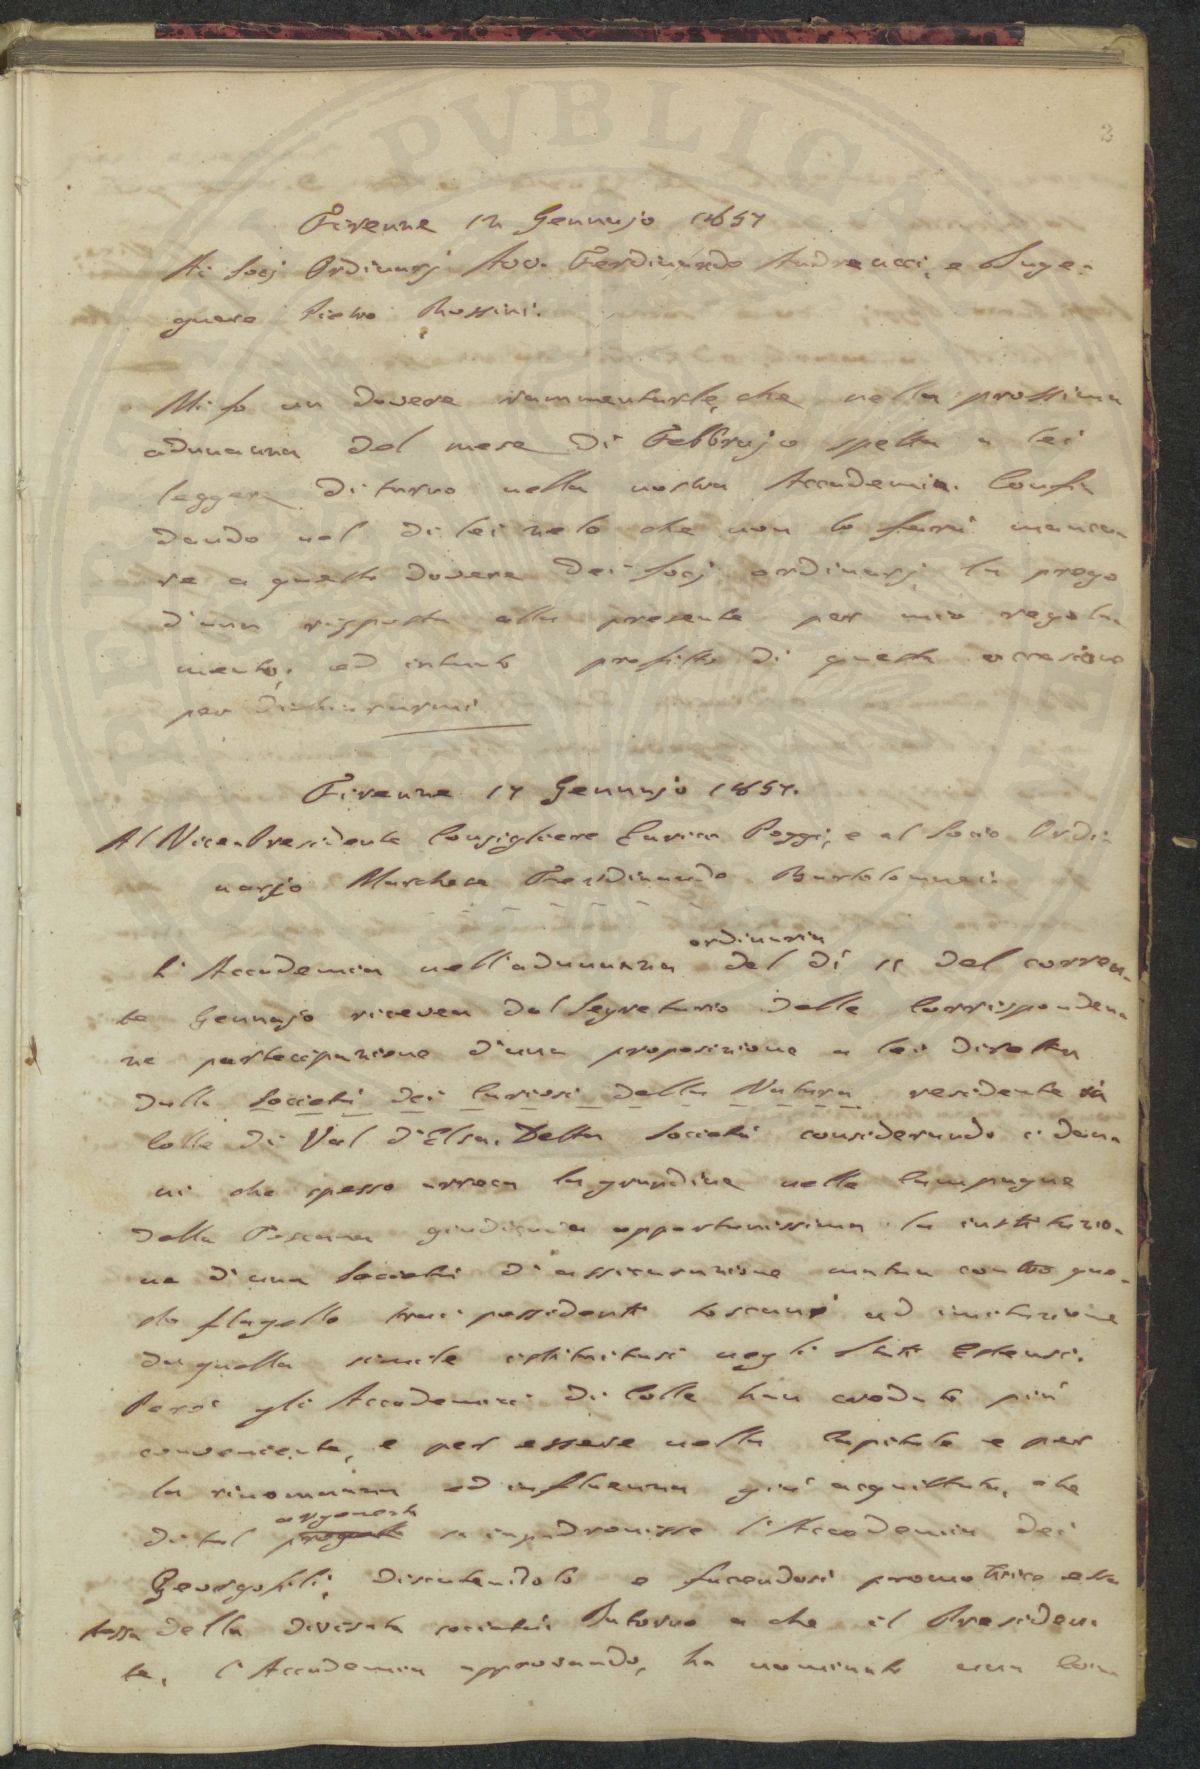 2
Firenze 12 Gennajo 1857
Ai Socj Ordinarj Avv. Ferdinando Andreucci, e Inge-
gnere Pietro Rossini.
Mi fo un dovere rammentarle, che nella prossima
adunanza del mese di Febbrajo spetta a lei
leggere di turno nella nostra Accademia. Confi
dando nel di lei zelo che non lo farà manca-
re a questo dovere dei Socj ordinarj, la prego
d'una risposta alla presente per mio regola-
mento, ed intanto profitto di questa occasione
per dichiararmi
Firenze 17 Gennajo 1857.
Al Vice-Presidente Consigliere Enrico Poggi, e al Socio Ordi-
narjo Marchese Ferdinando Bartolommei.
ordinaria
L'Accademia nell'adunanza del dì 11 del corren-
te Gennajo riceveva dal Segretario delle Corrisponden-
ze partecipazione d'una proposizione a lei diretta
dalla Società dei Curiosi della Natura residente in
Colle di Val d'Elsa. Detta Società considerando i dan-
ni che spesso arreca la grandine nelle Campagne
della Toscana giudicava opportunissima la instituzio-
ne d'una Società di assicurazione mutua contro que-
sto flagello trai possidenti toscani ad imitazione
di quella simile istituitasi negli Stati Estensi.
Però gli Accademici di Colle han creduto più
conveniente, e per essere nella Capitale e per
la rinomanza ed influenza già acquistata, che
argomento
di tal progetto si impadronisse l'Accademia dei
Georgofili, discutendolo e facendosi promotrice essa
stessa della divisata società. Intorno a che il Presiden-
te, l'Accademia approvando, ha nominato una Com